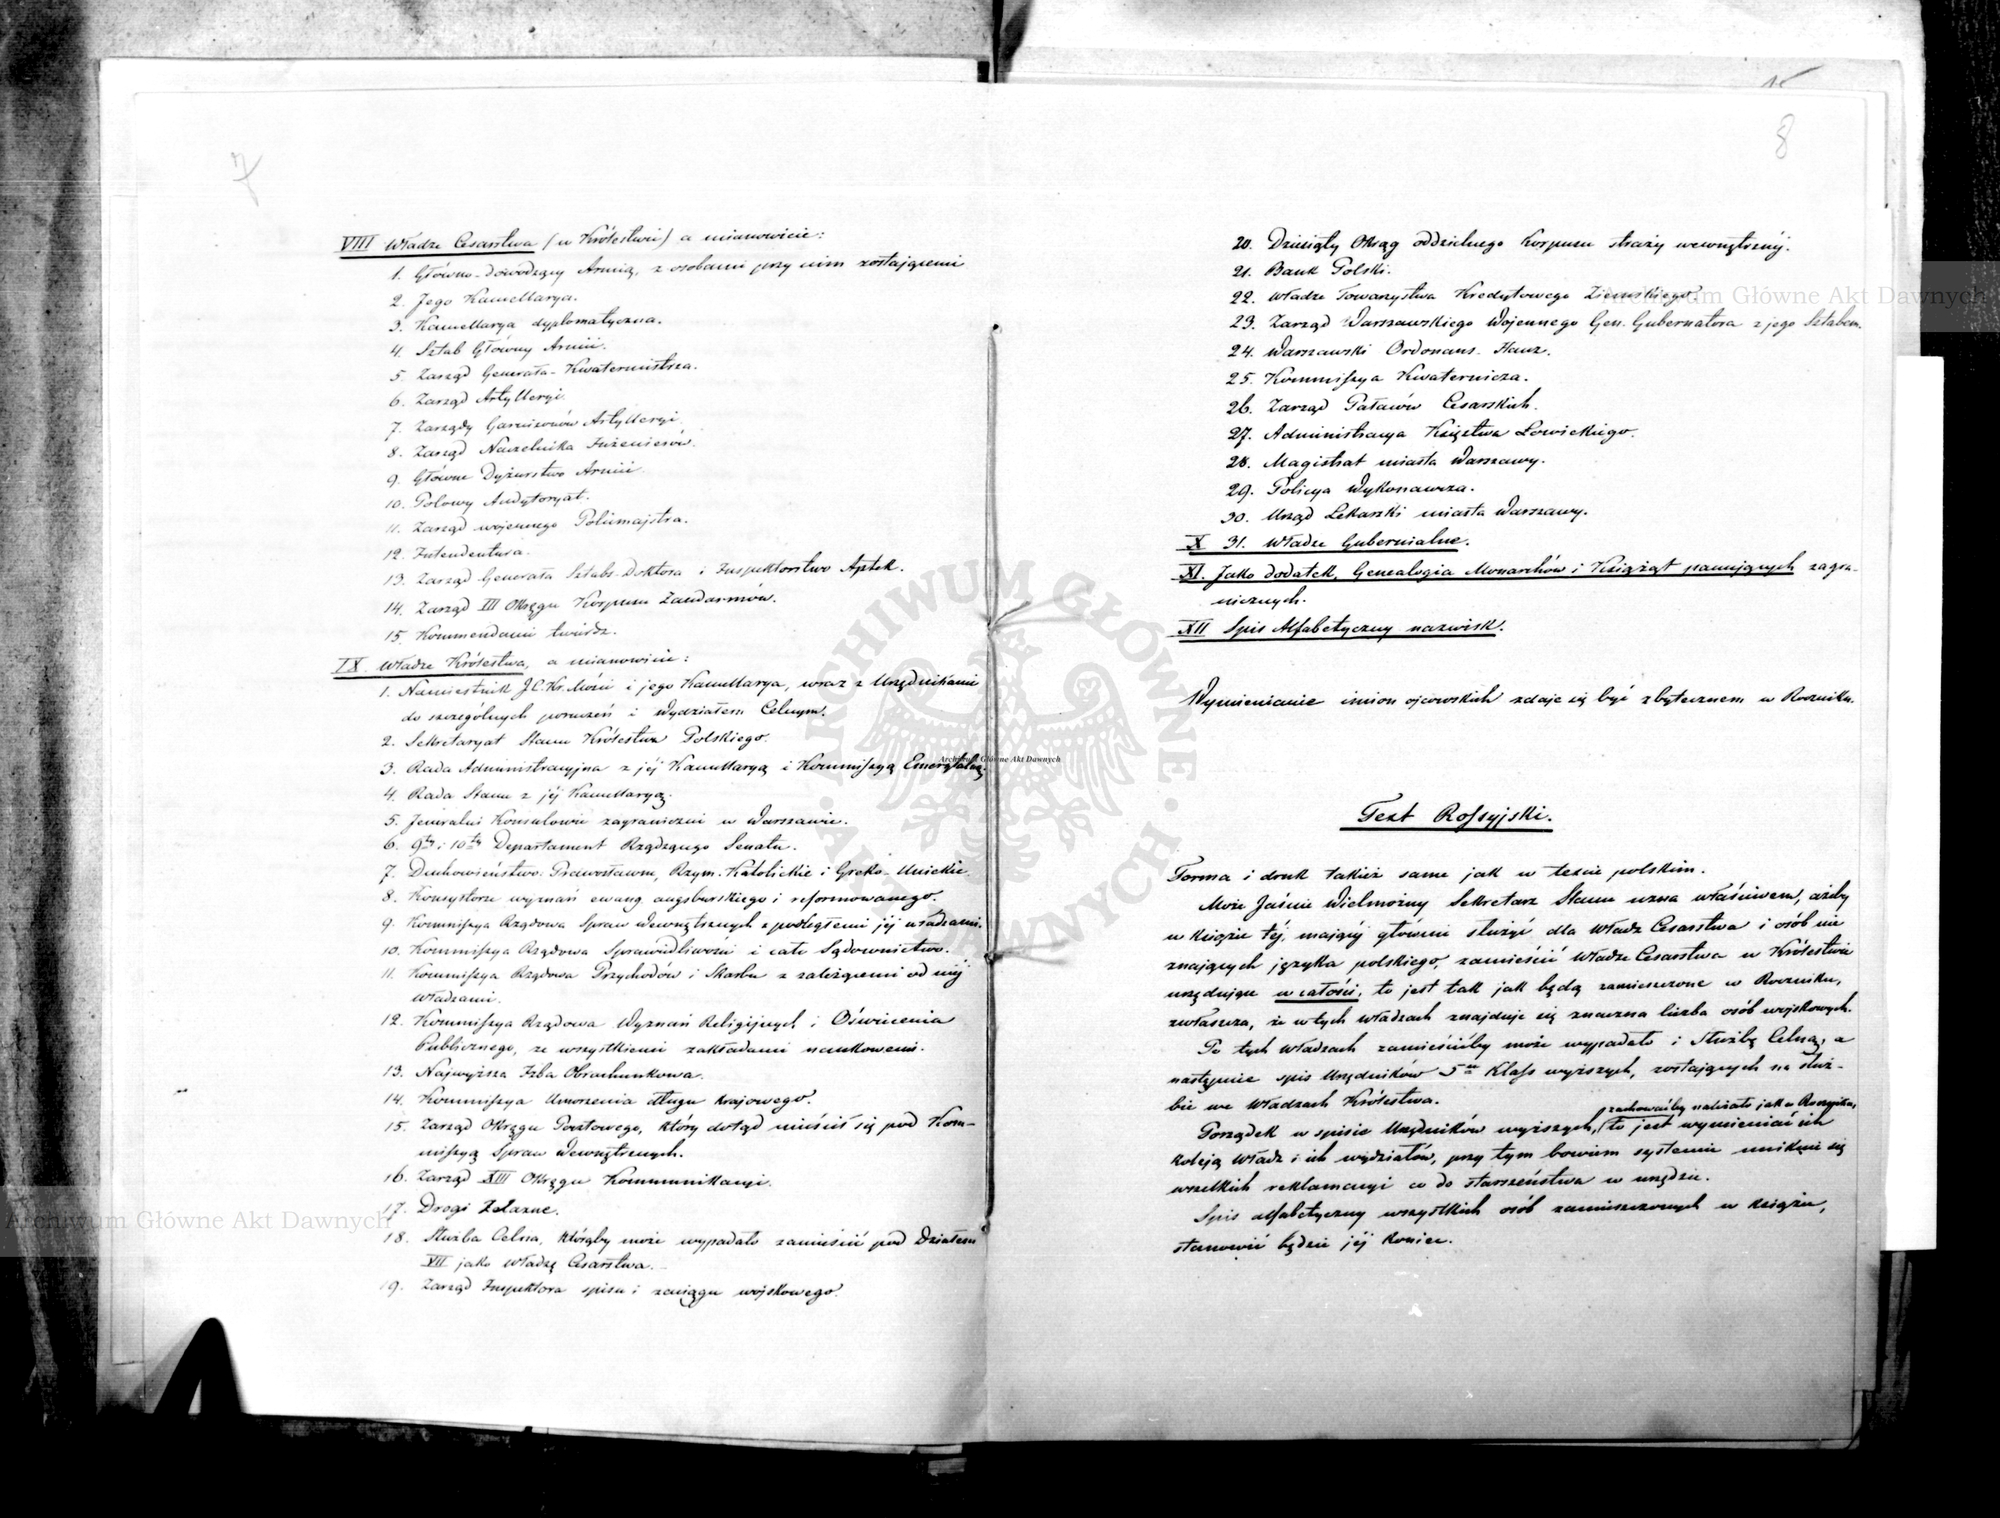 7
VIII Władze Cesarstwa (w Królestwie) a mianowicie:
1. Główno-dowodzący Armią, z osobami przy nim zostającemi
2. Jego Kancellarya.
3. Kancellarya dyplomatyczna.
4. Sztab Główny Armii.
5. Zarząd Generała-Kwatermistrza.
6. Zarząd Artylleryi.
7. Zarządy Garnizonów Artylleryi.
8. Zarząd Naczelnika Inżenierów.
9. Główne Dyżurstwo Armii.
10. Polowy Audytoryat.
11. Zarząd wojennego Policmajstra.
12. Intendentura.
13. Zarząd Generała Sztabs-Doktora i Inspektorstwo Aptek.
14. Zarząd III Okręgu Korpusu Żandarmów.
15. Kommendanci twierdz.
IX. Władze Królestwa, a mianowicie:
1. Namiestnik J.C.Kr. Mości i jego Kancellarya, wraz z Urzędnikami
do szczególnych poruczeń i Wydziałem Celnym.
2. Sekretaryat Stanu Królestwa Polskiego.
3. Rada Administracyjna z jéj Kancellaryą i Kommissyą Emerytalną.
4. Rada Stanu z jéj Kancellaryą.
5. Jeneralni Konsulowie zagraniczni w Warszawie.
6. 9ty i 10ty Departament Rządzącego Senatu.
7. Duchowieństwo: Prawosławne, Rzym. Katolickie i Greko-Unickie.
8. Konsystorze wyznań ewang. augsburskiego i reformowanego.
9. Kommissya Rządowa Spraw Wewnętrznych z podległemi jéj władzami.
10. Kommissya Rządowa Sprawiedliwości i całe Sądownictwo.
11. Kommissya Rządowa Przychodów i Skarbu z zależącemi od niéj
władzami.
12. Kommissya Rządowa Wyznań Religijnych i Oświecenia
Publicznego, ze wszystkiemi zakładami naukowemi.
13. Najwyższa Izba Obrachunkowa.
14. Kommissya Umorzenia długu krajowego.
15. Zarząd Okręgu Pocztowego, który dotąd mieścił się pod Kom-
missyą Spraw Wewnętrznych.
16. Zarząd XIII Okręgu Kommunikacyi.
17. Drogi Żelazne.
18. Służba Celna, którąby może wypadało zamieścić pod Działem
VII jako Władzę Cesarstwa.
19. Zarząd Inspektora spisu i zaciągu wojskowego.
8
20. Dziesiąty Okrąg oddzielnego Korpusu straży wewnętrznéj.
21. Bank Polski.
22. Władze Towarzystwa Kredytowego Ziemskiego.
23. Zarząd Warszawskiego Wojennego Gen. Gubernatora z jego Sztabem.
24. Warszawski Ordonans-Hauz.
25. Kommissya Kwaternicza.
26. Zarząd Pałaców Cesarskich.
27. Administracya Księstwa Łowickiego.
28. Magistrat miasta Warszawy.
29. Policya Wykonawcza.
30. Urząd Lekarski miasta Warszawy.
X 31. Władze Gubernialne.
XI. Jako dodatek, Genealogia Monarchów i Książąt panujących zagra-
nicznych.
XII Spis Alfabetyczny nazwisk.
Wymienianie imion ojcowskich zdaje się być zbytecznem w Roczniku.
Text Rossyjski.
Forma i druk takież same jak w texcie polskim.
Może Jaśnie Wielmożny Sekretarz Stanu uzna właściwem, ażeby
w księdze téj, mającéj głównie służyć dla Władz Cesarstwa i osób nie
znających języka polskiego, zamieścić Władze Cesarstwa w Królestwie
urzędujące w całości, to jest tak jak będą zamieszczone w Roczniku,
zwłaszcza, że w tych władzach znajduje się znaczna liczba osób wojskowych.
Po tych Władzach zamieścićby może wypadało i Służbę Celną, a
następnie spis Urzędników 5ciu Klass wyższych, zostających na służ-
bie we Władzach Królestwa.
zachowaćby należało jak w Roczniku,
Porządek w spisie Urzędników wyższych, to jest wymieniać ich
koleją Władz i ich wydziałów, przy tym bowiem systemie uniknie się
wszelkich reklamacyi co do starszeństwa w urzędzie.
Spis alfabetyczny wszystkich osób zamieszczonych w księdze,
stanowić będzie jéj koniec.
Archiwum Główne Akt Dawnych
Archiwum Główne Akt Dawnych
Archiwum Główne Akt Dawnych
ARCHIWUM GŁÓWNE AKT DAWNYCH